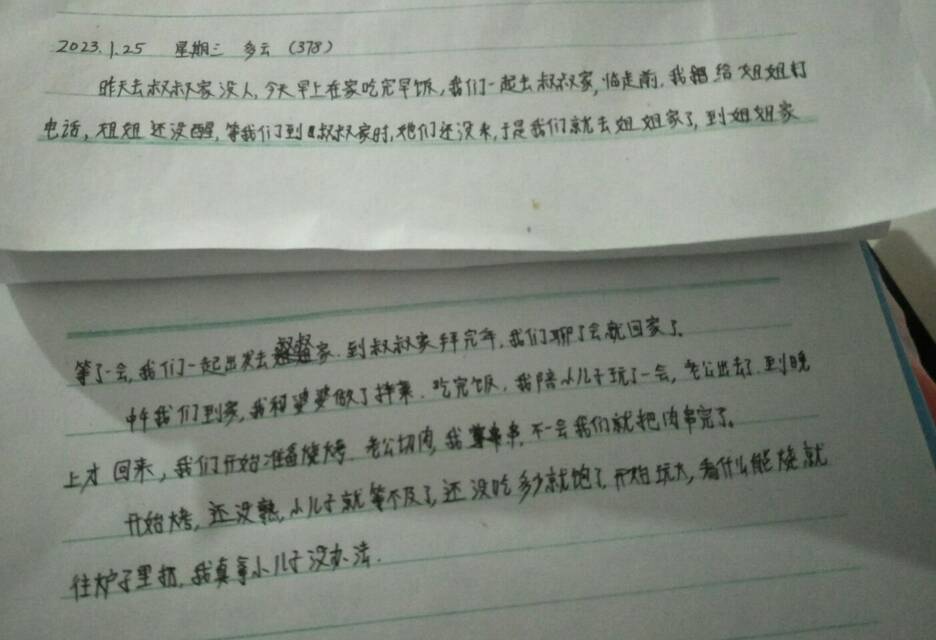 2023.1.25 星期三 多云 (378)
昨天去叔叔家没人,今天早上在家吃完早饭,我们一起去叔叔家,临走前,我给姐姐打
电话,姐姐还没醒,等我们到叔叔家时,她们还没来,于是我们就去姐姐家了,到姐姐家
等了一会,我们一起出发去叔叔家,到叔叔家拜完年,我们聊了会就回家了。
中午我们到家,我和婆婆做了拌菜,吃完饭,我陪小儿子玩了一会,老公出去了,到晚
上才回来,我们开始准备烧烤,老公切肉,我串,不一会我们就把肉串完了。
开始烤,还没熟,小儿子就等不及了,还没吃多少就饱了,开始玩火,看什么能烧就
往炉子里扔,我真拿小儿子没办法.